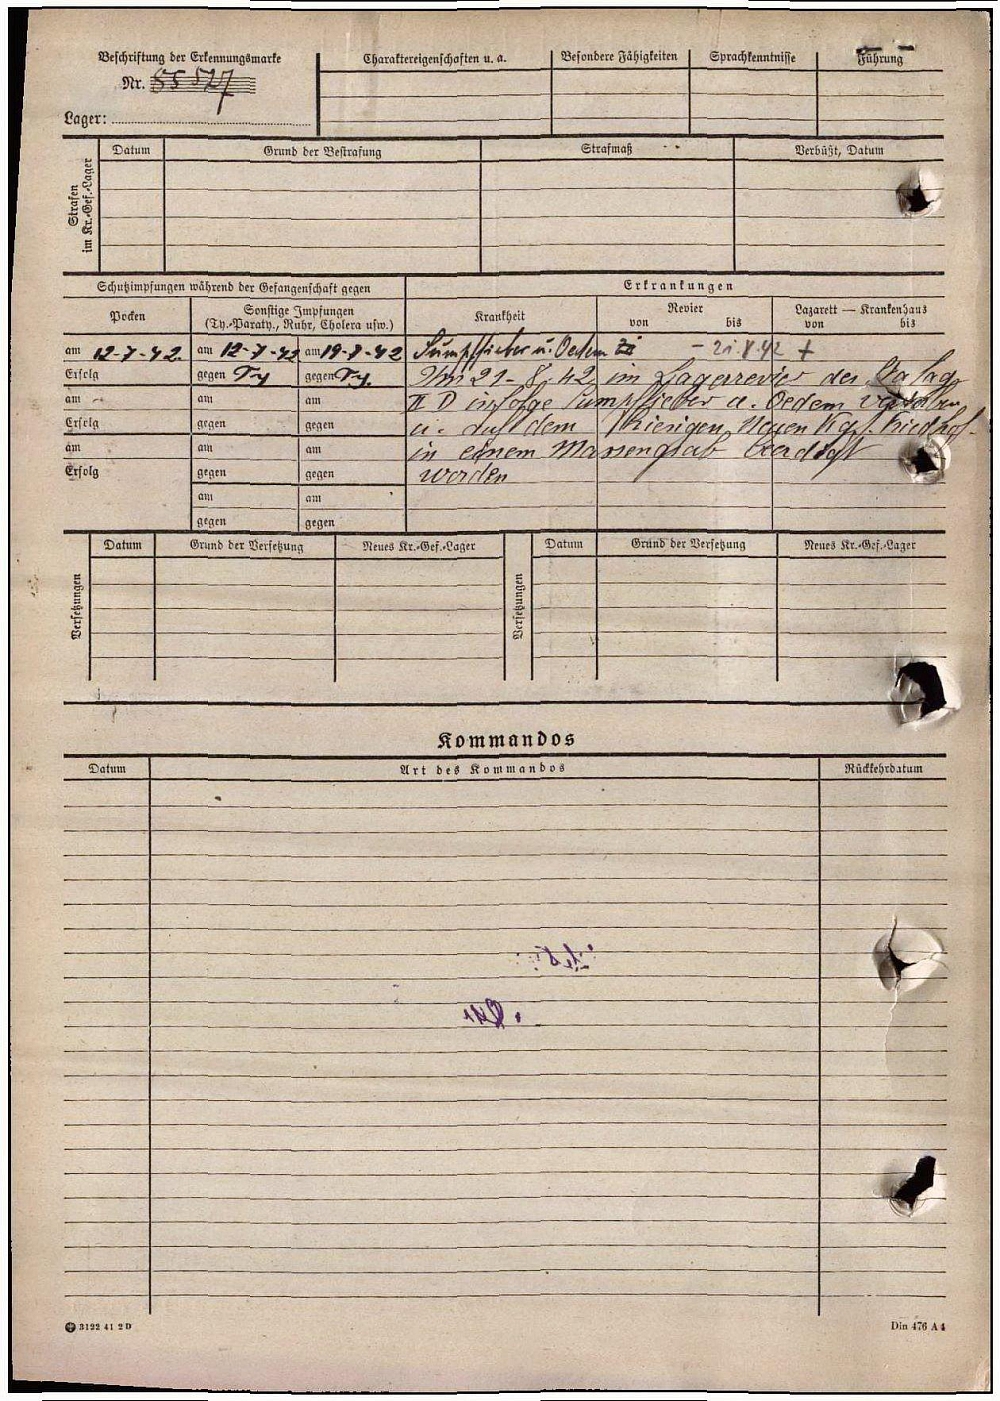 Beschriftung der Erkennungsmarke
Nr. 55 527
Lager:
Charaktereigenschaften u. a.
Besondere Fähigkeiten
Sprachkenntnisse
Führung
Strafen im Kr.-Gef.-Lager
Datum
Grund der Bestrafung
Strafmaß
Verbüßt, Datum
Schutzimpfungen während der Gefangenschaft gegen
Erkrankungen
Pocken
Sonstige Impfungen
(Ty.-Paraty., Ruhr, Cholera usw.)
Krankheit
Revier
von bis
Lazarett — Krankenhaus
von bis
am 12-7-42. am 12-7-42 am 19-7-42 Sumpffieber u. Oedem - 21.8.42 +
Erfolg gegen Ty gegen Ty. Am 21-8.42 im Lagerrevier des Stalag
am am am II D infolge Sumpffieber u. Oedem verstorben
Erfolg gegen gegen u. auf dem hiesigen Neuen Kgf. Friedhof-
am am am in einem Massengrab beerdigt
Erfolg gegen gegen worden
am am
gegen gegen
Versetzungen
Datum Grund der Versetzung Neues Kr.-Gef.-Lager
Versetzungen
Datum Grund der Versetzung Neues Kr.-Gef.-Lager
Kommandos
Datum Art des Kommandos Rückkehrdatum
3122 41 2 D
Din 476 A 4